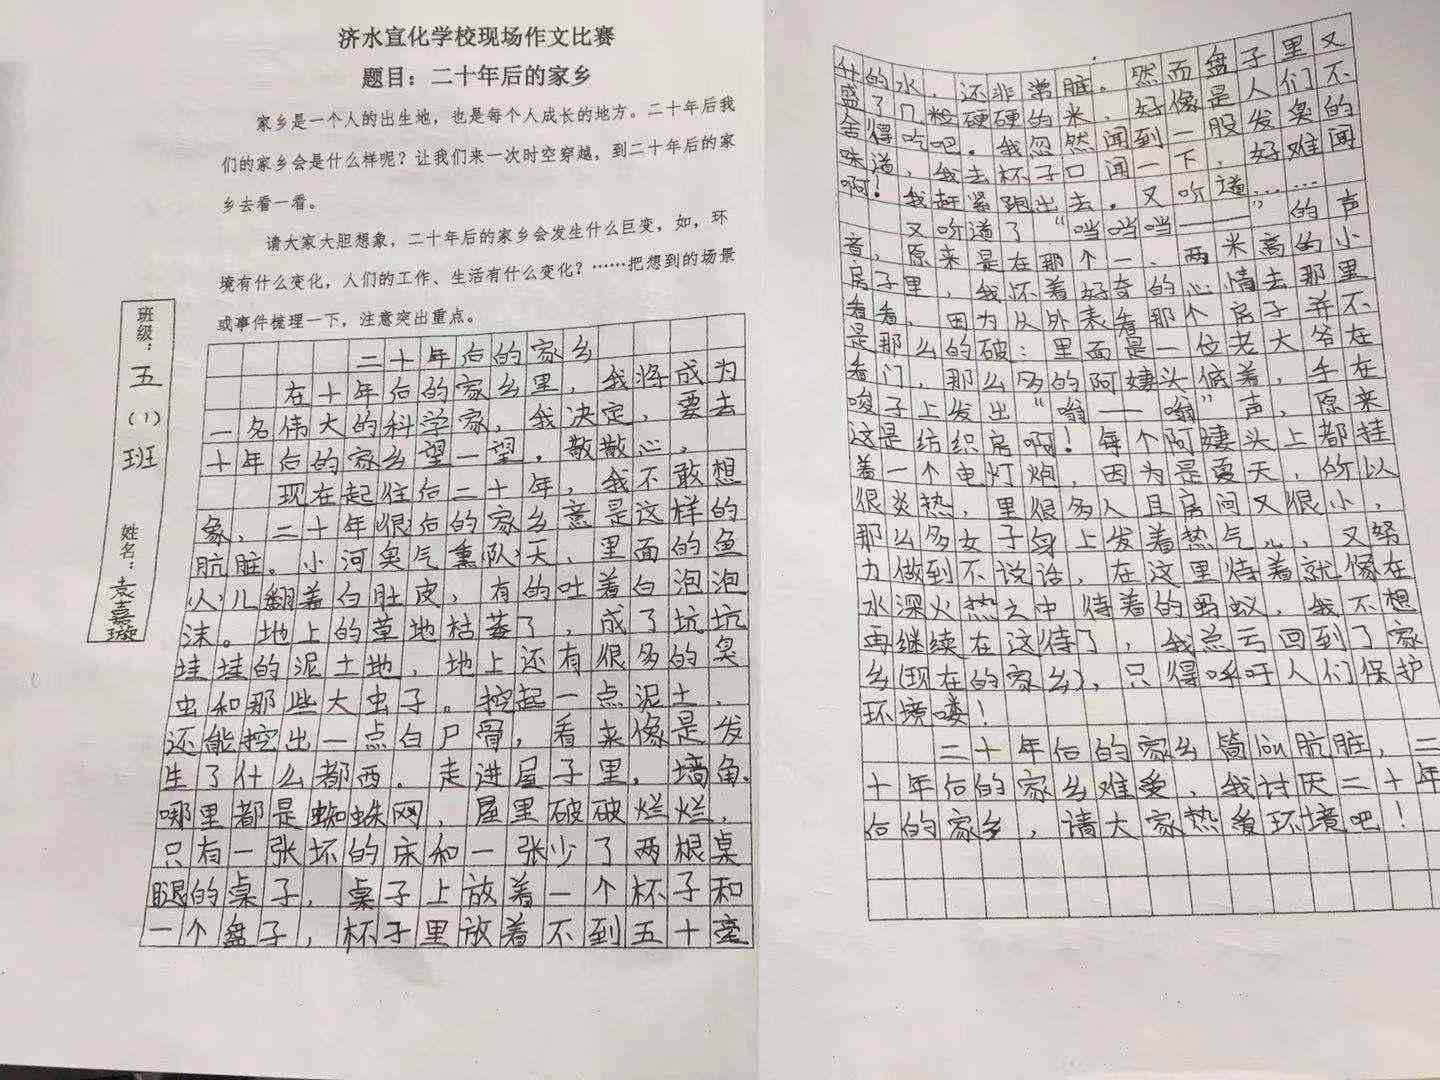 济水宣化学校现场作文比赛
题目：二十年后的家乡
家乡是一个人的出生地，也是每个人成长的地方。二十年后我
们的家乡会是什么样呢？让我们来一次时空穿越，到二十年后的家
乡去看一看。
请大家大胆想象，二十年后的家乡会发生什么巨变，如，环
境有什么变化，人们的工作、生活有什么变化？……把想到的场景
或事件梳理一下，注意突出重点。
班级：五（1）班
姓名：袁嘉璇
二十年后的家乡
在十年后的家乡里，我将成为
一名伟大的科学家，我决定，要去
十年后的家乡望一望，散散心，
现在起住后二十年，我不敢想
象，二十年后的家乡意是这样的
肮脏。小河臭气熏天，里面的鱼
儿翻着白肚皮，有的吐着白泡泡
沫。地上的草地枯萎了，成了坑坑
洼洼的泥土地，地上还有很多的臭
虫和那些大虫子。挖起一点泥土，
还能挖出一点白尸骨，看来像是发
生了什么都西。走进屋子里，墙角，
哪里都是蜘蛛网，屋里破破烂烂，
只有一张坏的床和一张少了两根桌
腿的桌子，桌子上放着一个杯子和
一个盘子，杯子里放着不到五十毫
升的水，还非常脏。然而盘子里又
盛了几粒硬硬的米，好像是人们不
舍得吃吧。我忽然闻到一股发臭的
味道，我去杯子口闻一下，好难闻
啊！我赶紧跑出去。又听道……
又听道了“当当当——”的声
音，原来是在那个一、两米高的小
房子里，我怀着好奇的心情去那里
看看，因为从外表看那个房子并不
是那么的破：里面是一位老大爷在
看门，那么多的阿婕头低着，手在
唆子上发出“嗡——嗡”声，原来
这是纺织房啊！每个阿婕头上都挂
着一个电灯炮，因为是夏天，所以
很炎热，里很多人且房间又很小，
那么多女子身上发着热气儿，又努
力做到不说话，在这里待着就像在
水深火热之中待着的蚂蚁，我不想
再继续在这待了，我总云回到了家
乡(现在的家乡)，只得呼吁人们保护
环境喽！
二十年后的家乡简直肮脏，二
十年后的家乡难受，我讨厌二十年
后的家乡，请大家热爱环境吧！